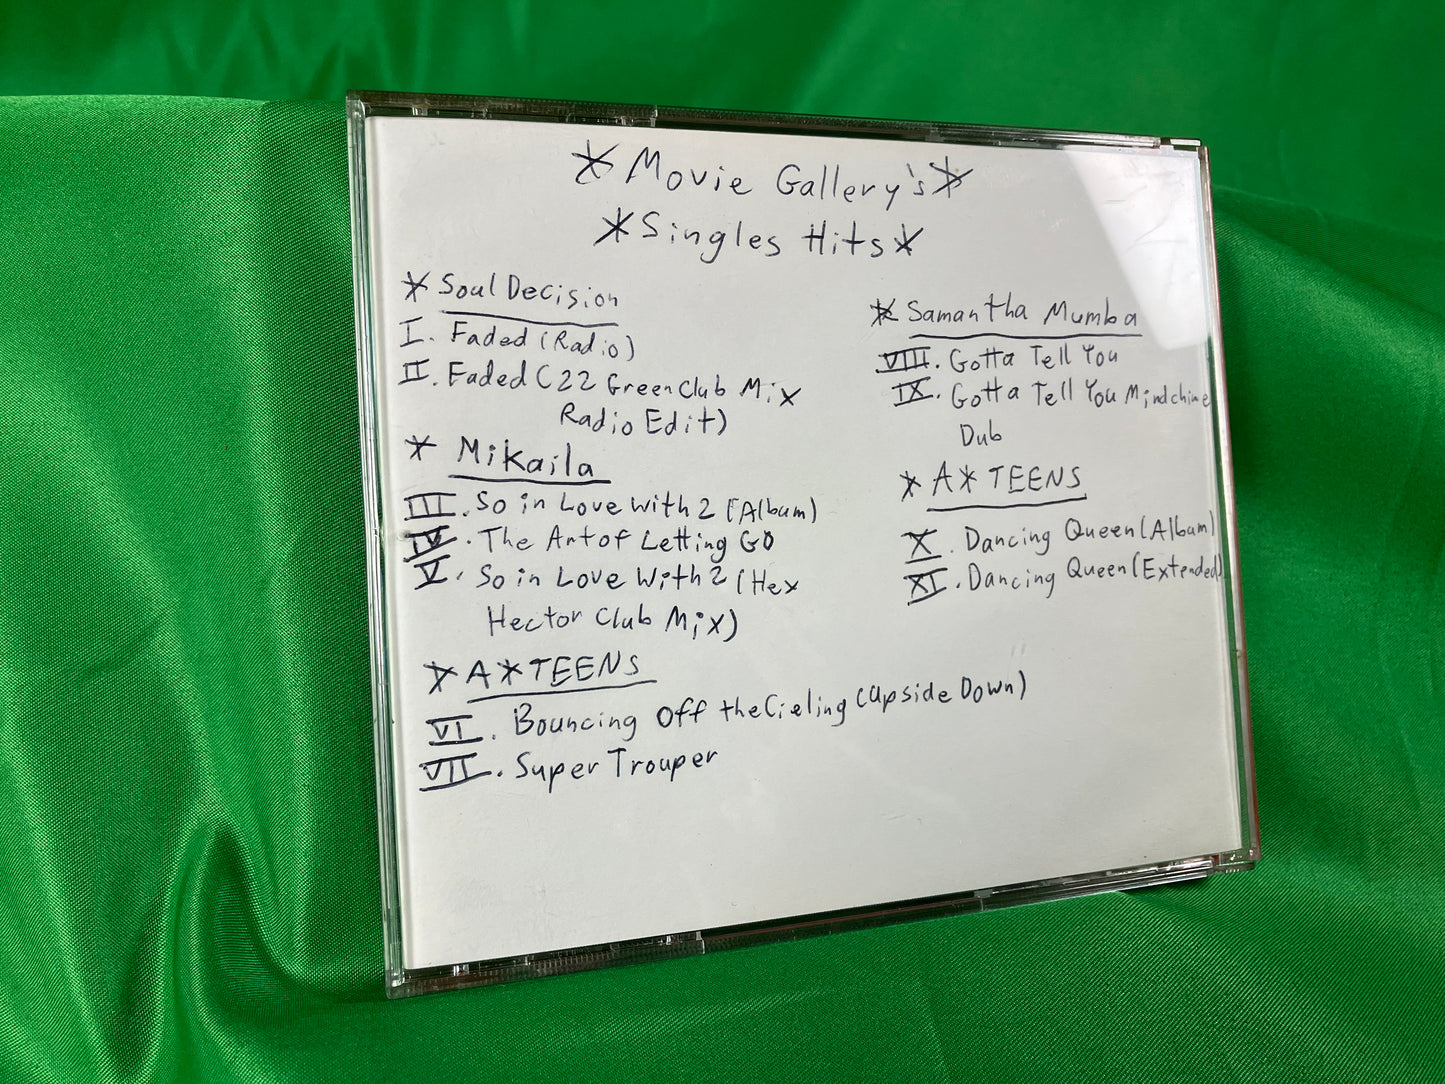 *Movie Gallery's*
*Singles Hits*
* Soul Decision
I. Faded (Radio)
II. Faded (22 Green Club Mix
Radio Edit)
* Mikaila
III. So in Love With 2 (Album)
IV. The Art of Letting GO
V. So in Love With 2 (Hex
Hector Club Mix)
* A*TEENS
VI. Bouncing Off the Cieling (Upside Down)
VII. Super Trouper
* Samantha Mumba
VIII. Gotta Tell You
IX. Gotta Tell You Mindchime
Dub
* A*TEENS
X. Dancing Queen (Album)
XI. Dancing Queen (Extended)